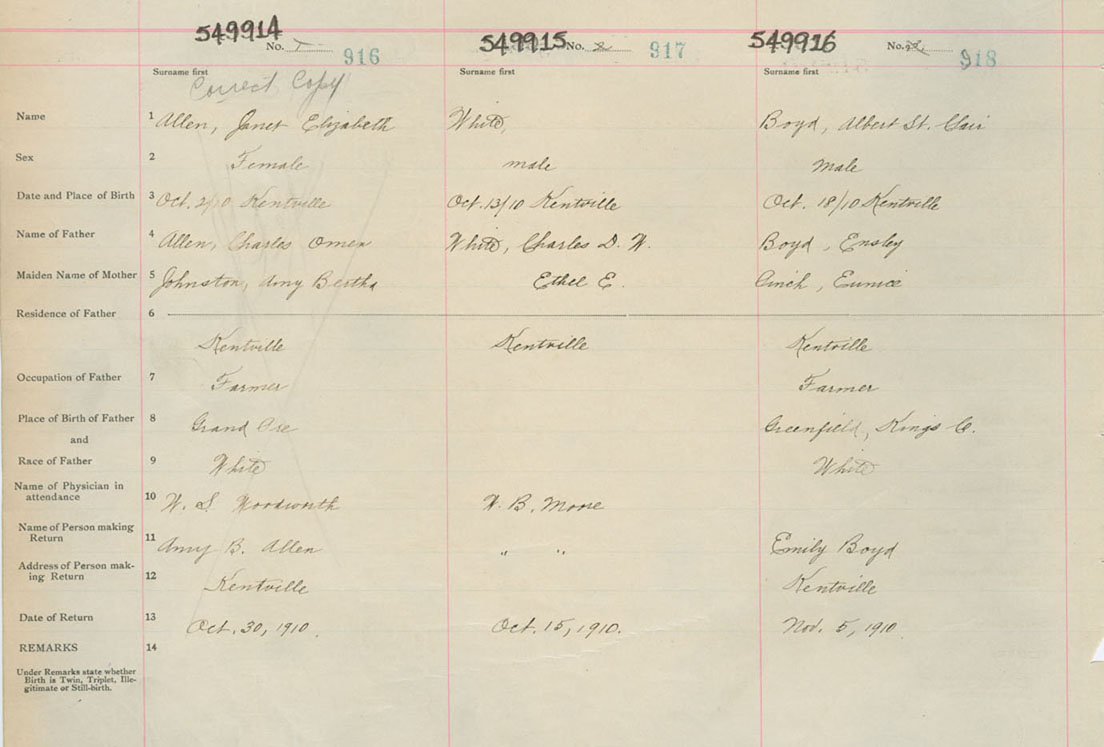 549914 No. 916 549915 No. 917 549916 No. 918
Surname first Surname first Surname first
Correct Copy
Name 1 Allen, Janet Elizabeth White, Boyd, Albert St. Clair
Sex 2 Female male Male
Date and Place of Birth 3 Oct. 2/10 Kentville Oct. 13/10 Kentville Oct. 18/10 Kentville
Name of Father 4 Allen, Charles Omen White, Charles D. W. Boyd, Ensley
Maiden Name of Mother 5 Johnston, Amy Bertha Ethel E. Eunice
Residence of Father 6
Kentville Kentville Kentville
Occupation of Father 7 Farmer Farmer
Place of Birth of Father 8 Grand Pre Greenfield, Kings C.
and
Race of Father 9 White White
Name of Physician in
attendance 10 W. S. Woodworth W. B. Moore
Name of Person making
Return 11 Amy B. Allen " " Emily Boyd
Address of Person mak-
ing Return 12 Kentville Kentville
Date of Return 13 Oct. 30, 1910. Oct. 15, 1910. Nov. 5, 1910
REMARKS 14
Under Remarks state whether
Birth is Twin, Triplet, Ille-
gitimate or Still-birth.